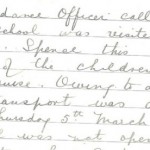 dance Officer call
school was visite
. Spence this
of the children
urse. Owing to a
ansport was a
hursday 5th March
l was not ope